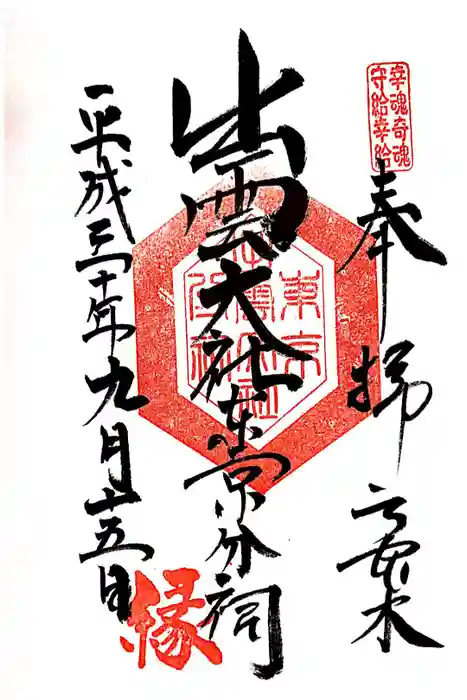 幸魂奇魂
守給幸給
奉拝 六本木
出雲大社東京分祠
東京
出雲大社
分祠
平成三十年九月十五日
縁